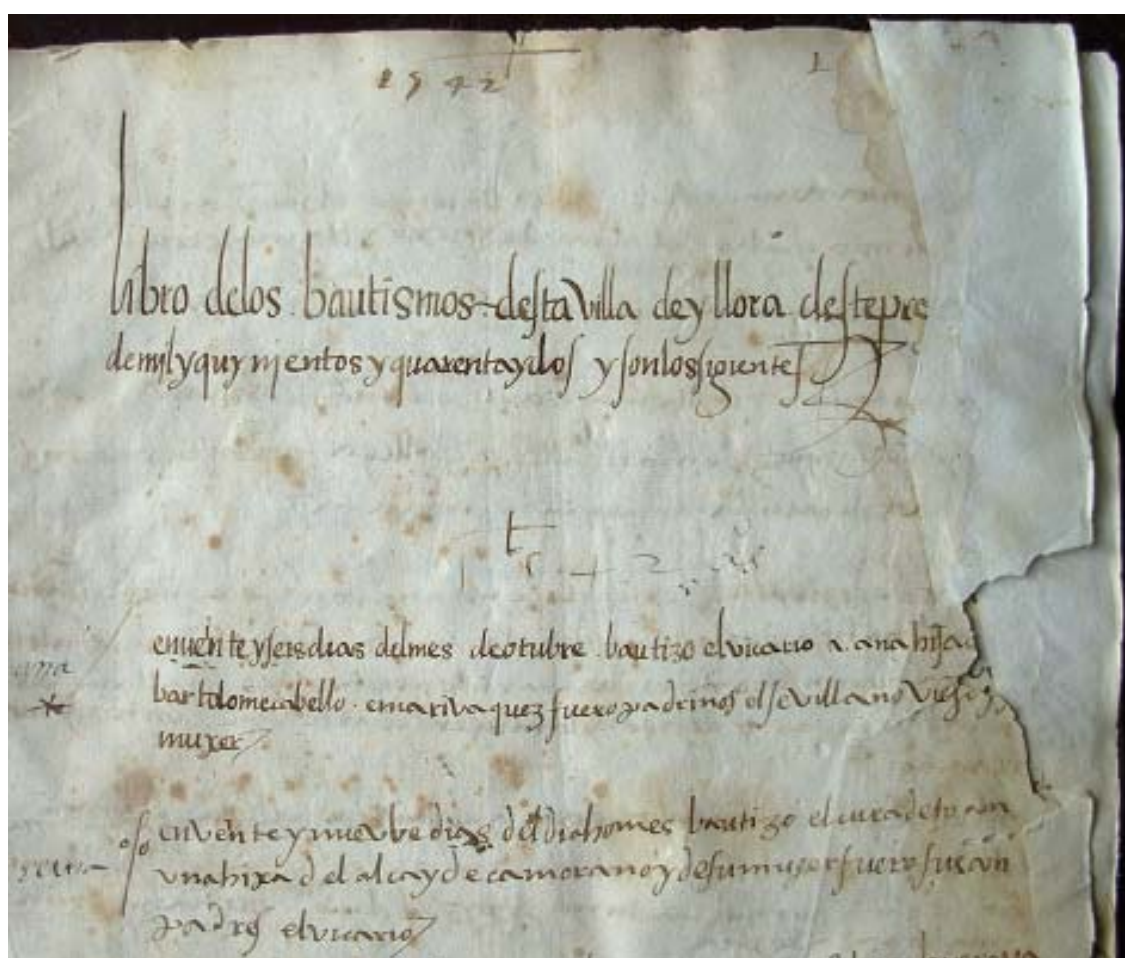 1542
1
libro delos bautismos desta villa de yllora deste pre
de mjl y quynjentos y quarenta y dos y son los sigientes
t
1542
en veynte y seis dias del mes de otubre bautizo el vicario a ana hija
bartolome cabello e mari vaquez fuero padrinos el sevillano viejo
muger
en vente y nueve dias del dicho mes bautizo el cura
vna hixa del alcayde camorano y de su muger fuero sus
padres el vicario